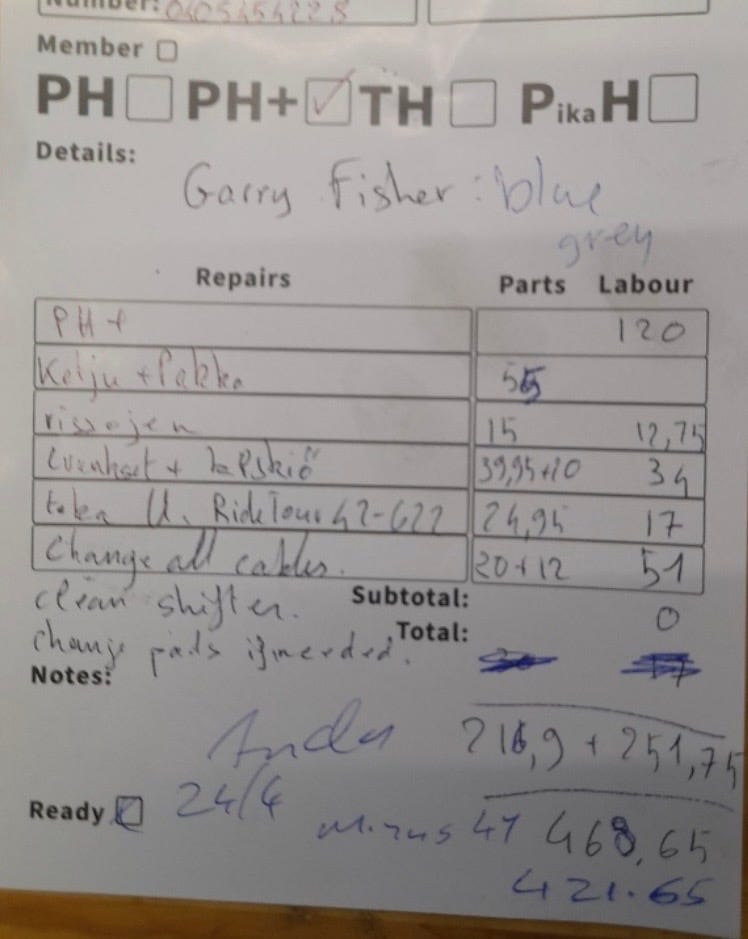 Number: 0405454228
Member
PH PH+ TH PikaH
Details:
Garry Fisher: blue
grey
Repairs Parts Labour
PH+ 120
Ketju + Pakka 55
rissojen 15 12,75
39,95+20 34
taka U. Ride Tour 42-622 24,95 17
Change all cables. 20+12 51
clean shifter. Subtotal: 0
change pads if needed. Total:
Notes:
216,9 + 251,75
Ready 24/4
minus 47 468,65
421.65